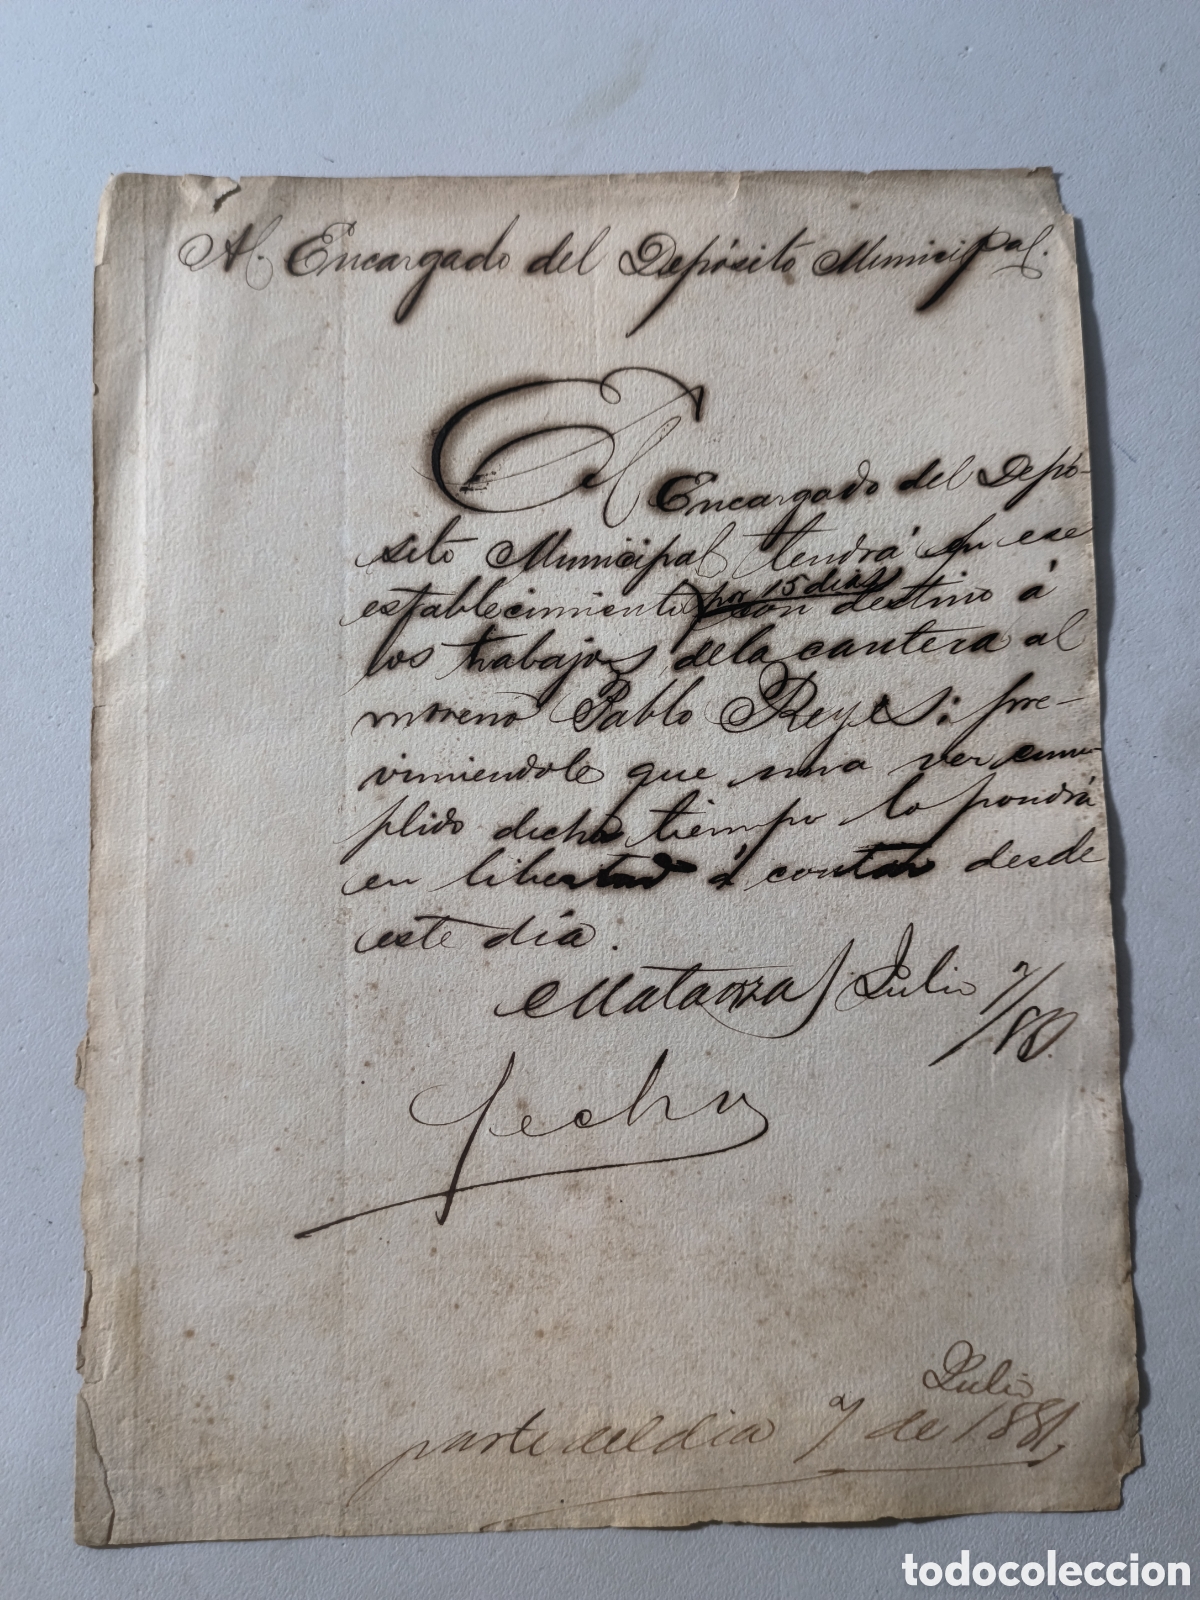 Al Encargado del Depósito Municipal.
El Encargado del Depó-
sito Municipal tendrá en ese
por 15 dias
establecimiento con destino á
los trabajos de la cantera al
moreno Pablo Reyes: pre-
viniendole que una vez cum-
plido dicho tiempo lo pondrá
en libertad á contar desde
este día.
Matanzas Julio 7/
Julio
parte del dia 7 de 1881,
todocoleccion